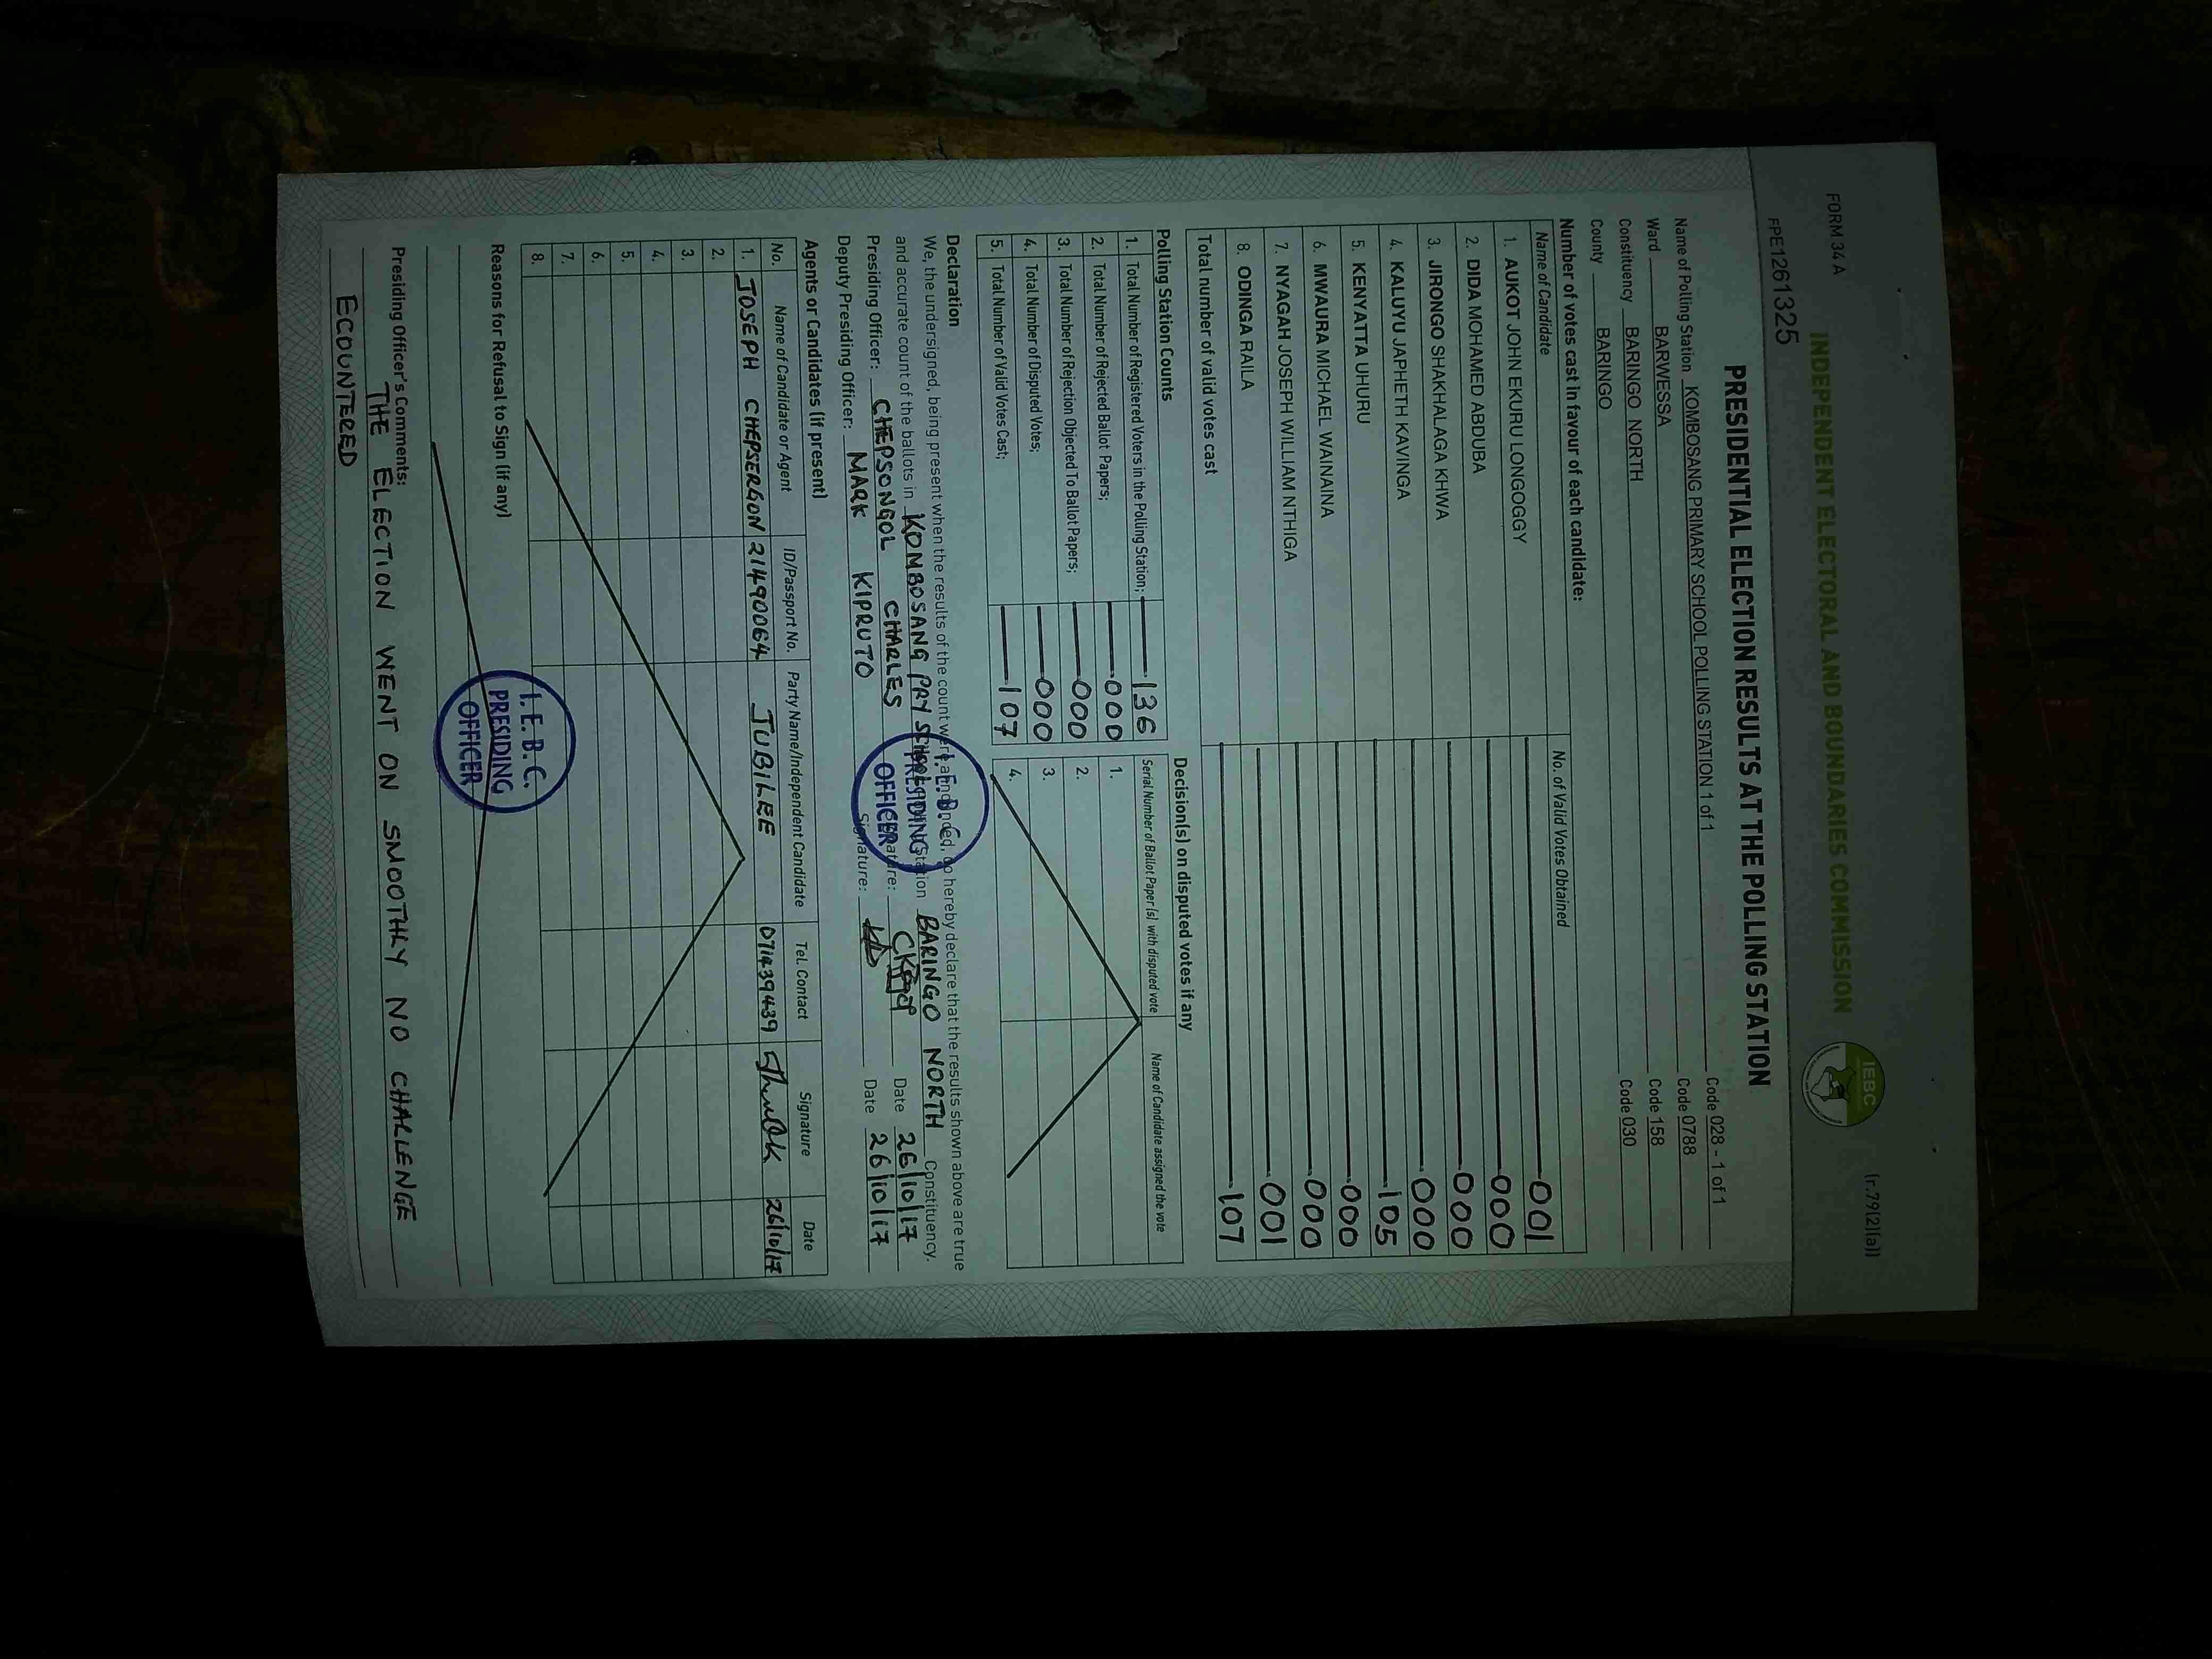 FORM 34 A
(r.79(2)(a))
INDEPENDENT ELECTORAL AND BOUNDARIES COMMISSION
IEBC
PPE1261325
PRESIDENTIAL ELECTION RESULTS AT THE POLLING STATION
Name of Polling Station KOMBOSANG PRIMARY SCHOOL POLLING STATION 1 of 1 Code 028 - 1 of 1
Ward BARWESSA Code 0788
Constituency BARINGO NORTH Code 158
County BARINGO Code 030
Number of votes cast in favour of each candidate:
Name of Candidate No. of Valid Votes Obtained
1. AUKOT JOHN EKURU LONGOGGY 001
2. DIDA MOHAMED ABDUBA 000
3. JIRONGO SHAKHALAGA KHWA 000
4. KALUYU JAPHETH KAVINGA 000
5. KENYATTA UHURU 105
6. MWAURA MICHAEL WAINAINA 000
7. NYAGAH JOSEPH WILLIAM NTHIGA 000
8. ODINGA RAILA 001
Total number of valid votes cast 107
Polling Station Counts
1. Total Number of Registered Voters in the Polling Station; 136
2. Total Number of Rejected Ballot Papers; 000
3. Total Number of Rejection Objected To Ballot Papers; 000
4. Total Number of Disputed Votes; 000
5. Total Number of Valid Votes Cast; 107
Decision(s) on disputed votes if any
Serial Number of Ballot Paper (s) with disputed vote Name of Candidate assigned the vote
1.
2.
3.
4.
Declaration
We, the undersigned, being present when the results of the count were announced, do hereby declare that the results shown above are true
and accurate count of the ballots in KOMBOSANG PRY SCHOOL Polling Station BARINGO NORTH Constituency.
Presiding Officer: CHEPSONGOL CHARLES Signature: Date 26/10/17
Deputy Presiding Officer: MARK KIPRUTO Signature: Date 26/10/17
I. E. B. C.
PRESIDING
OFFICER
Agents or Candidates (if present)
No. Name of Candidate or Agent ID/Passport No. Party Name/Independent Candidate Tel. Contact Signature Date
1. JOSEPH CHEPSERGON 21490064 JUBILEE 0714394439 26/10/17
2.
3.
4.
5.
6.
7.
8.
Reasons for Refusal to Sign (if any)
I. E. B. C.
PRESIDING
OFFICER
Presiding Officer's Comments:
THE ELECTION WENT ON SMOOTHLY NO CHALLENGE
ECOUNTERED